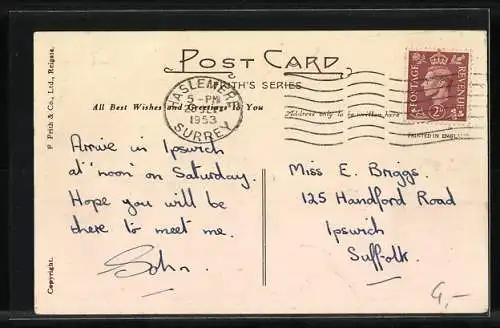 POST CARD
FRITH'S SERIES
All Best Wishes and Greetings to You
Address only to be written here
HASLEMERE
5 - PM
1953
SURREY
POSTAGE
REVENUE
PRINTED IN ENGL
F. Frith & Co., Ltd., Reigate.
Copyright.
Arrive in Ipswich
at "noon" on Saturday.
Hope you will be
there to meet me.
John.
Miss E. Briggs.
125 Handford Road
Ipswich
Suffolk.
4,-